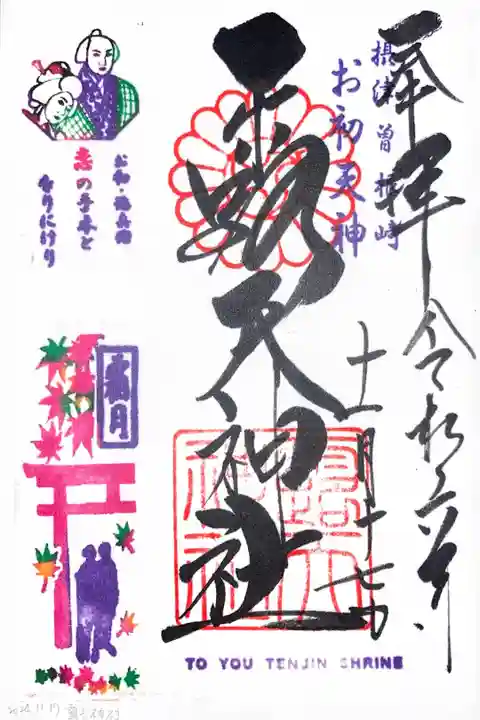 奉拝
令和六年
十一月十七日
摂津 曽根崎
お初天神
露天神社
TO YOU TENJIN SHRINE
お初・徳兵衛
恋の手本と
なりにけり
霜月